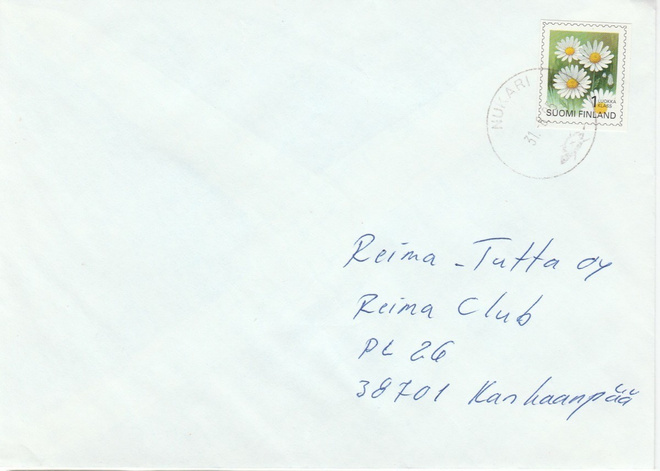 1 LUOKKA
KLASS
SUOMI FINLAND
NUKARI
31.
Reima-Tutta oy
Reima Club
PL 26
38701 Kankaanpää